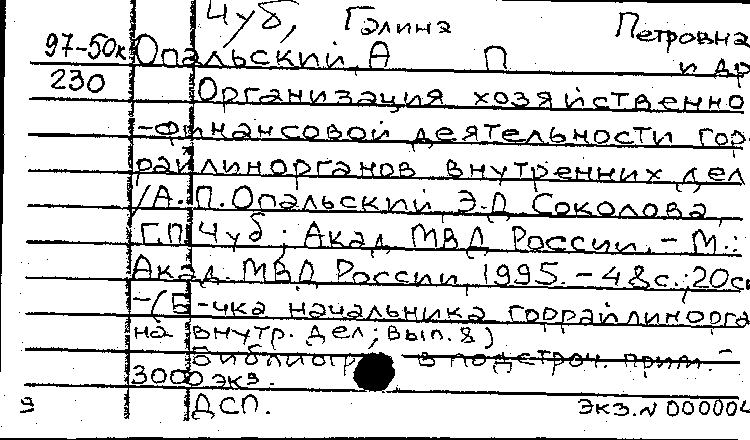 Чуб, Галина Петровна
97-50к Опальский, А П и др
230 Организация хозяйственно
-финансовой деятельности гор-
райлинорганов внутренних дел
/А.П.Опальский, Э.Д Соколова,
Г.П Чуб; Акад МВД России. - М.:
Акад. МВД России, 1995. - 48с.; 20см
-(Б-чка начальника горрайлиноргa
на внутр. дел; вып. 8)
Библиогр в подстроч. прим. -
3000 экз.
9 ДСП. Экз. N 000004